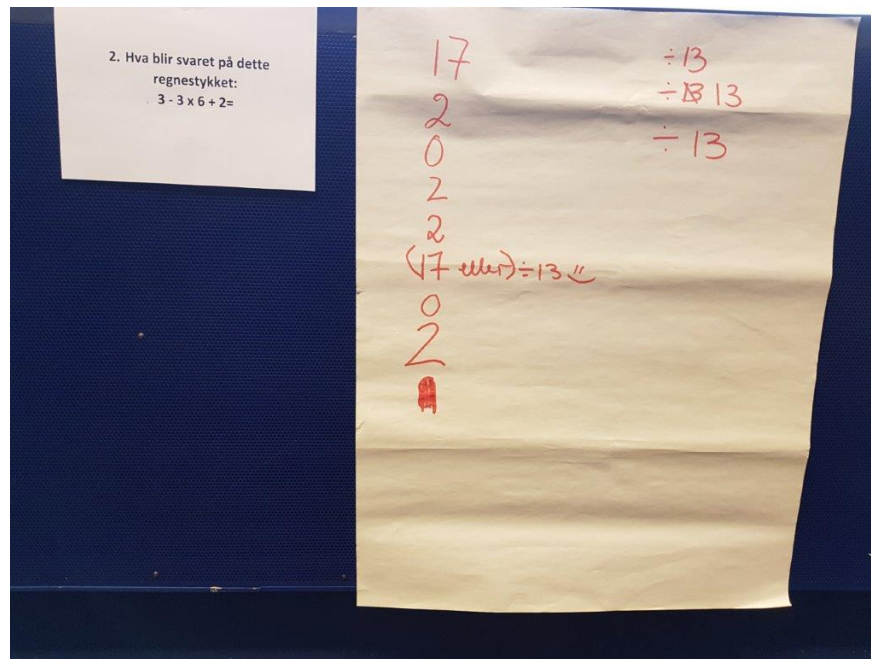 2. Hva blir svaret på dette
regnestykket:
3 - 3 x 6 + 2=
17
2
0
2
2
(17 eller) ÷ 13
0
2
÷ 13
÷ 13
÷ 13